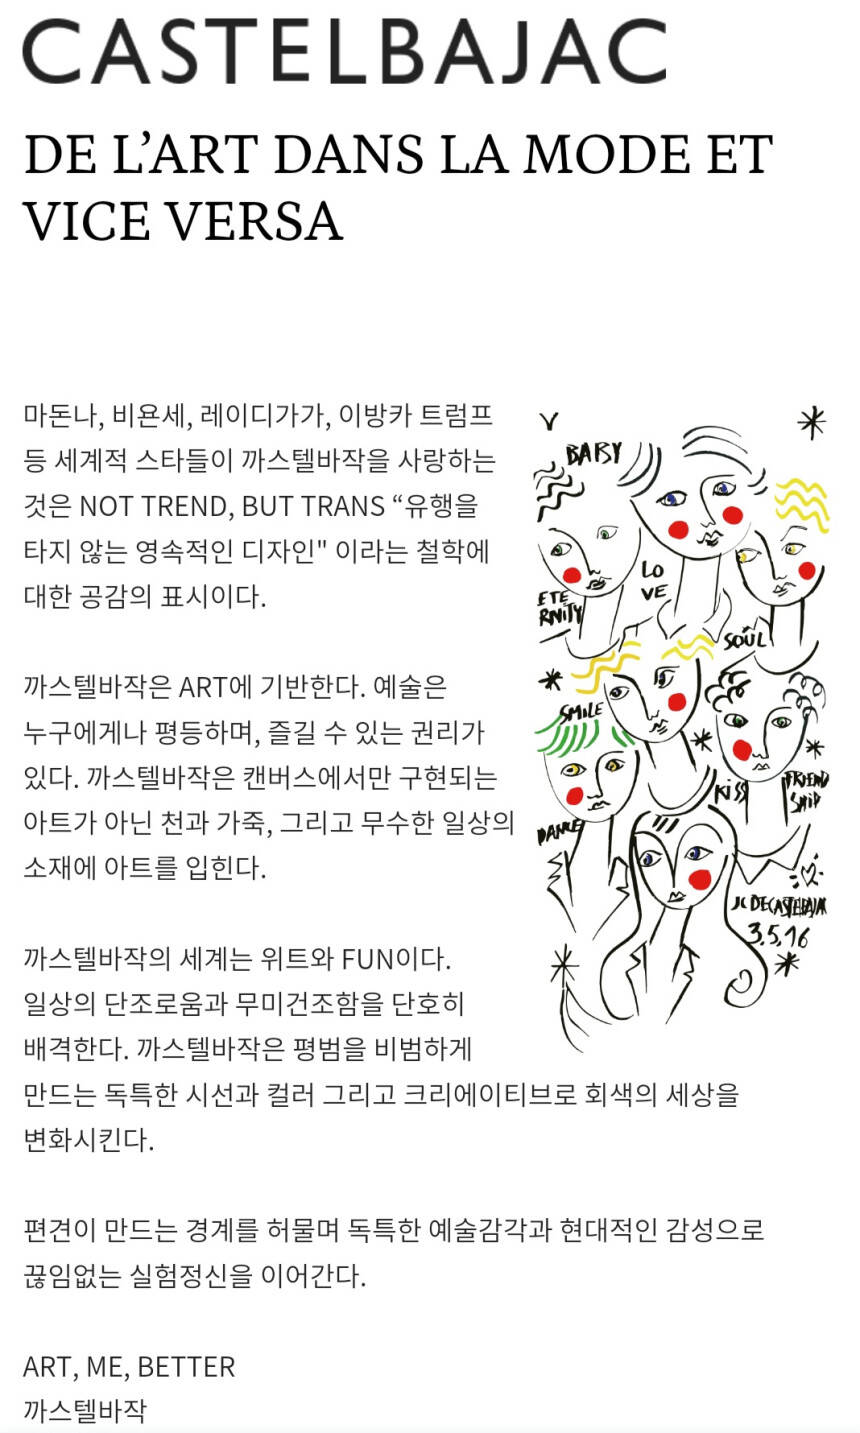 CASTELBAJAC
DE L’ART DANS LA MODE ET
VICE VERSA
마돈나, 비욘세, 레이디가가, 이방카 트럼프
등 세계적 스타들이 까스텔바작을 사랑하는
것은 NOT TREND, BUT TRANS “유행을
타지 않는 영속적인 디자인" 이라는 철학에
대한 공감의 표시이다.
까스텔바작은 ART에 기반한다. 예술은
누구에게나 평등하며, 즐길 수 있는 권리가
있다. 까스텔바작은 캔버스에서만 구현되는
아트가 아닌 천과 가죽, 그리고 무수한 일상의
소재에 아트를 입힌다.
까스텔바작의 세계는 위트와 FUN이다.
일상의 단조로움과 무미건조함을 단호히
배격한다. 까스텔바작은 평범을 비범하게
만드는 독특한 시선과 컬러 그리고 크리에이티브로 회색의 세상을
변화시킨다.
편견이 만드는 경계를 허물며 독특한 예술감각과 현대적인 감성으로
끊임없는 실험정신을 이어간다.
ART, ME, BETTER
까스텔바작
BABY
LO
VE
ETE
RNITY
SOUL
SMILE
KISS
FRIEND
SHIP
DANCE
JC DE CASTELBAJAC
3.5.16